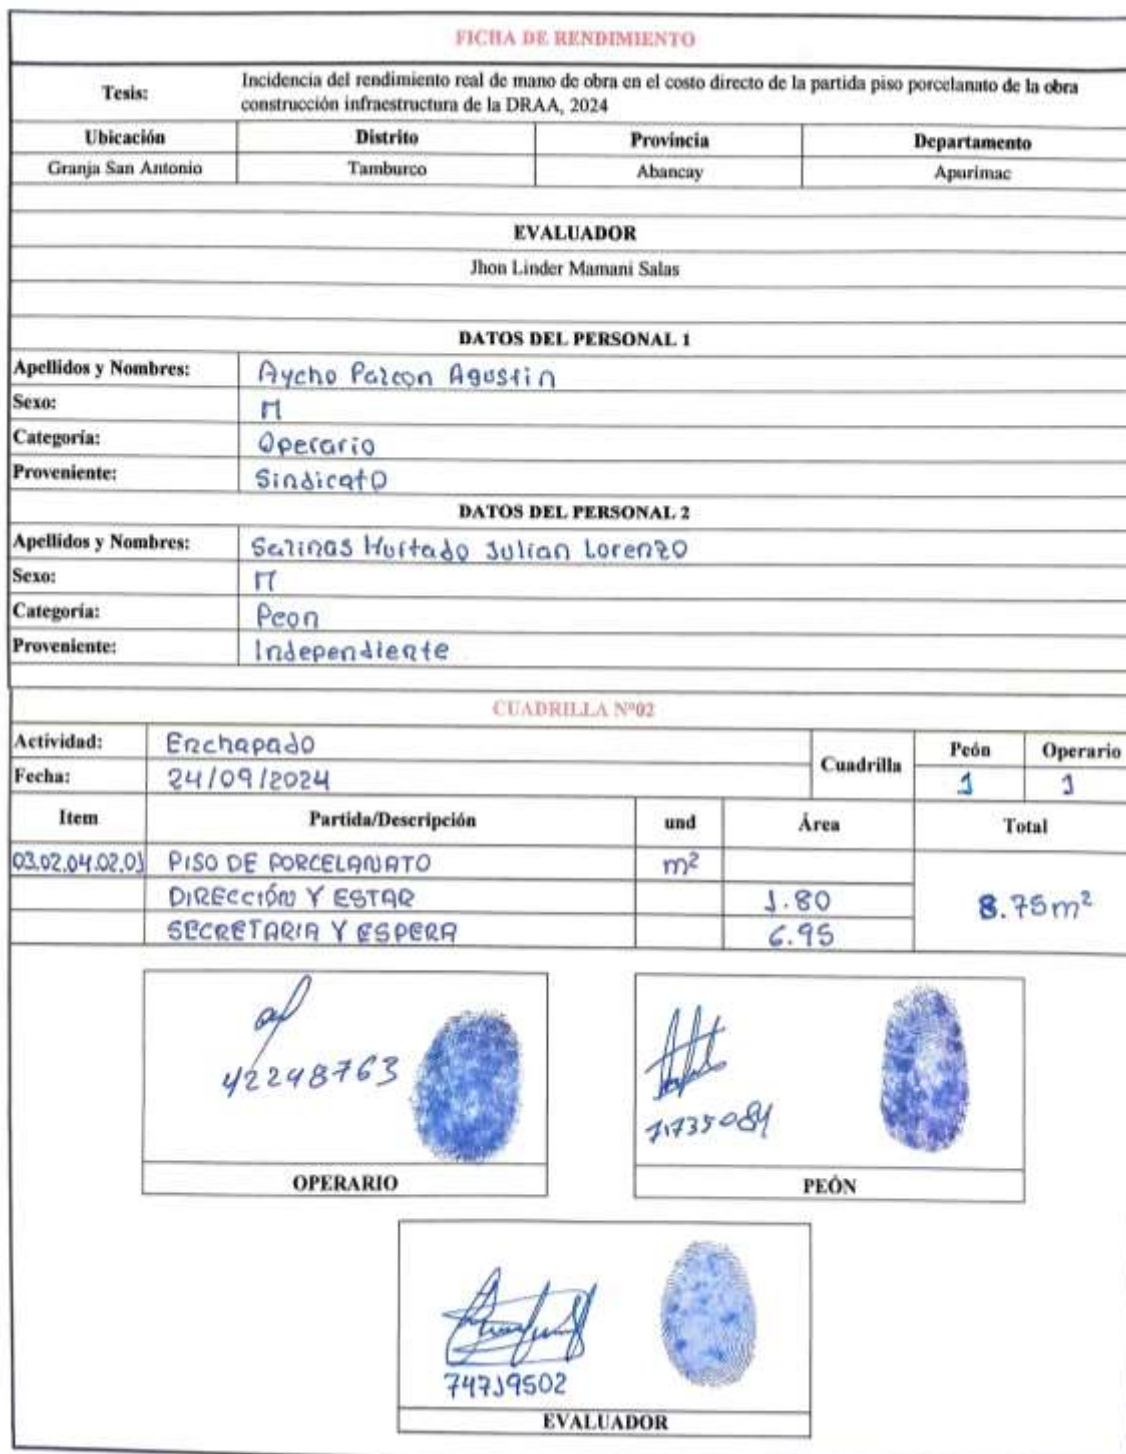 FICHA DE RENDIMIENTO
Tesis: Incidencia del rendimiento real de mano de obra en el costo directo de la partida piso porcelanato de la obra
construcción infraestructura de la DRAA, 2024
Ubicación Distrito Provincia Departamento
Granja San Antonio Tamburco Abancay Apurimac
EVALUADOR
Jhon Linder Mamani Salas
DATOS DEL PERSONAL 1
Apellidos y Nombres: Aycho Palcon Agustin
Sexo: M
Categoría: Operario
Proveniente: Sindicato
DATOS DEL PERSONAL 2
Apellidos y Nombres: Salinas Hurtado Julian Lorenzo
Sexo: M
Categoría: Peon
Proveniente: Independiente
CUADRILLA N°02
Actividad: Enchapado Cuadrilla Peón Operario
Fecha: 24/09/2024 1 1
Item Partida/Descripción und Área Total
03.02.04.02.01 PISO DE PORCELANATO m²
DIRECCIÓN Y ESTAR 1.80 8.75m²
SECRETARIA Y ESPERA 6.95
42248763
OPERARIO
71735084
PEÓN
74719502
EVALUADOR